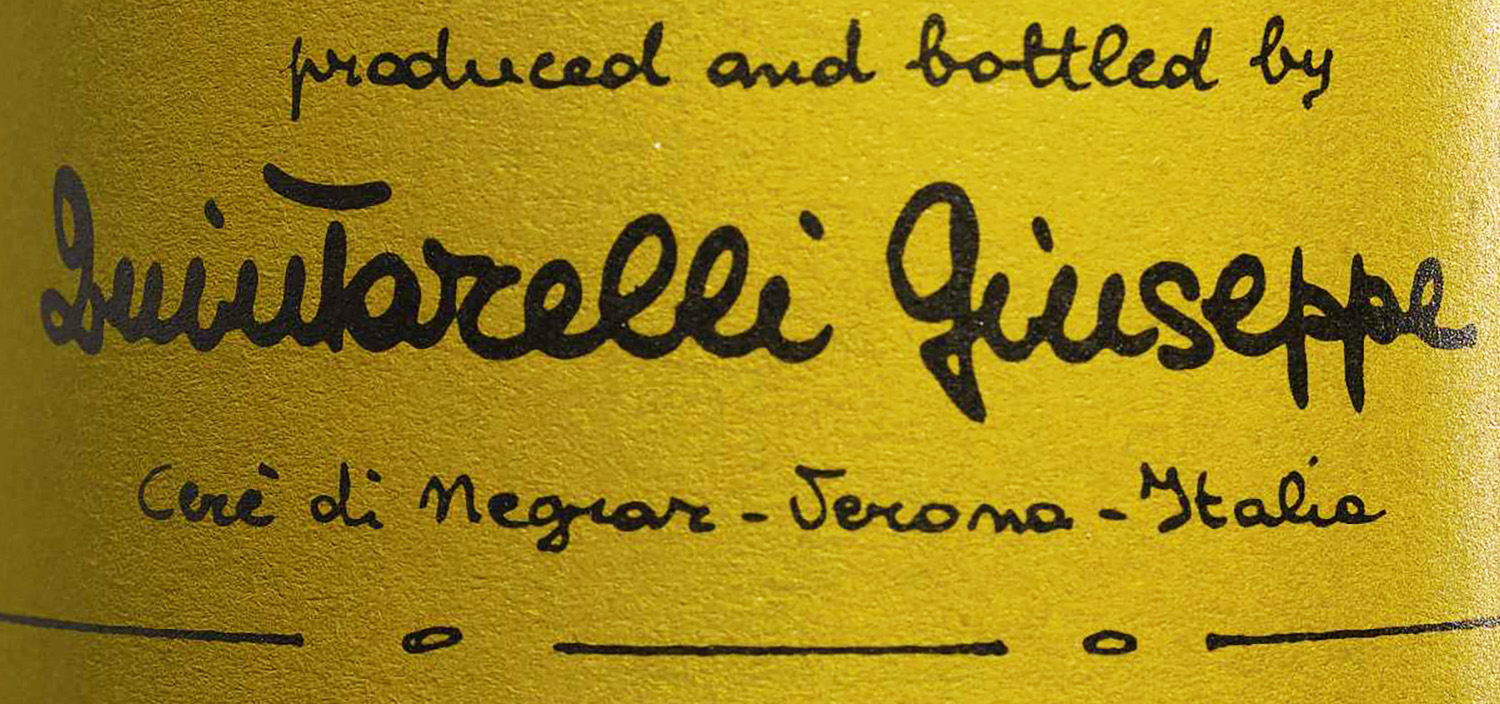 produced and bottled by
Quintarelli Giuseppe
Cerè di Negrar - Verona - Italia